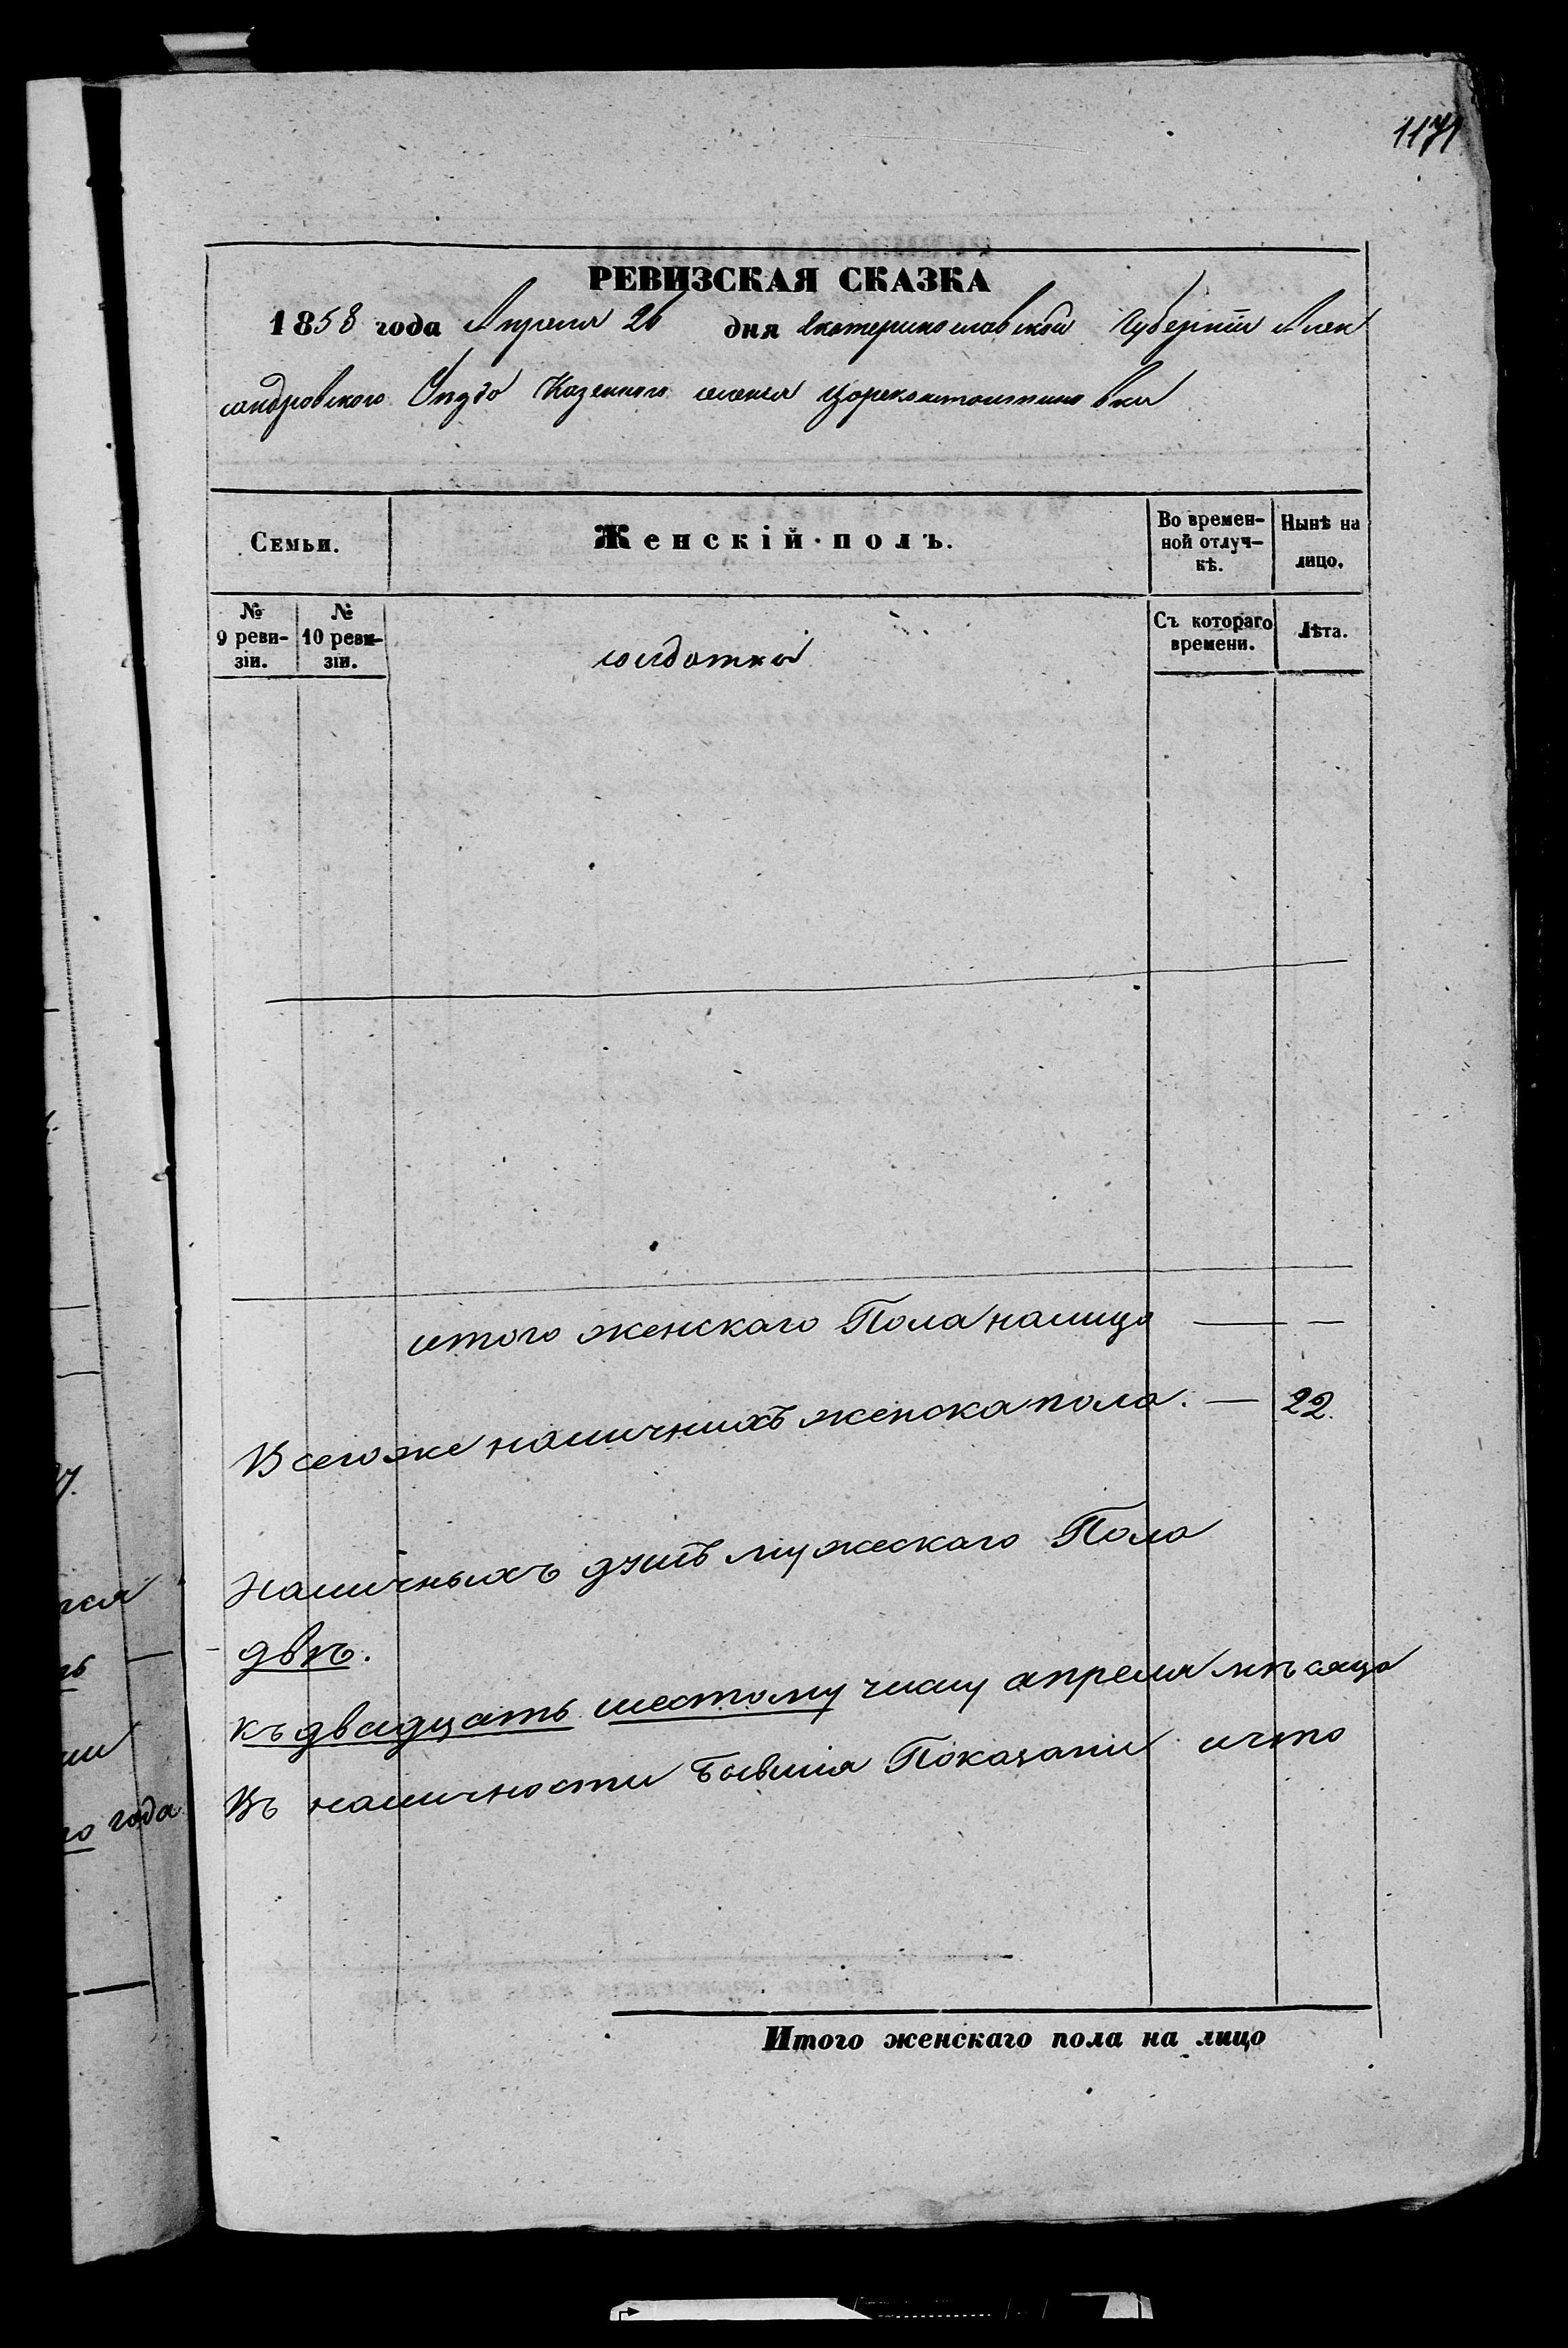 1171
РЕВИЗСКАЯ СКАЗКА
1858 года Апреля 26 дня Екатеринославской Губернiи Алек
сандровского Уѣзда Казенного селенiя Цареконстантиновки
Семьи.
Женскiй полъ.
Во времен-
ной отлуч-
кѣ.
Нынѣ на
лицо.
№
9 реви-
зiи.
№
10 реви-
зiи.
солдатки
Съ котораго
времени.
Лѣта.
итого женскаго Пола налицо — —
Всегоже наличнихъ женска пола. — 22.
Наличныхъ душъ мужескаго Пола
двѣ.
къ двадцать шестому числу апреля мѣсяца
Въ наличности бывшiя Показани ичто
года
Итого женскаго пола на лицо